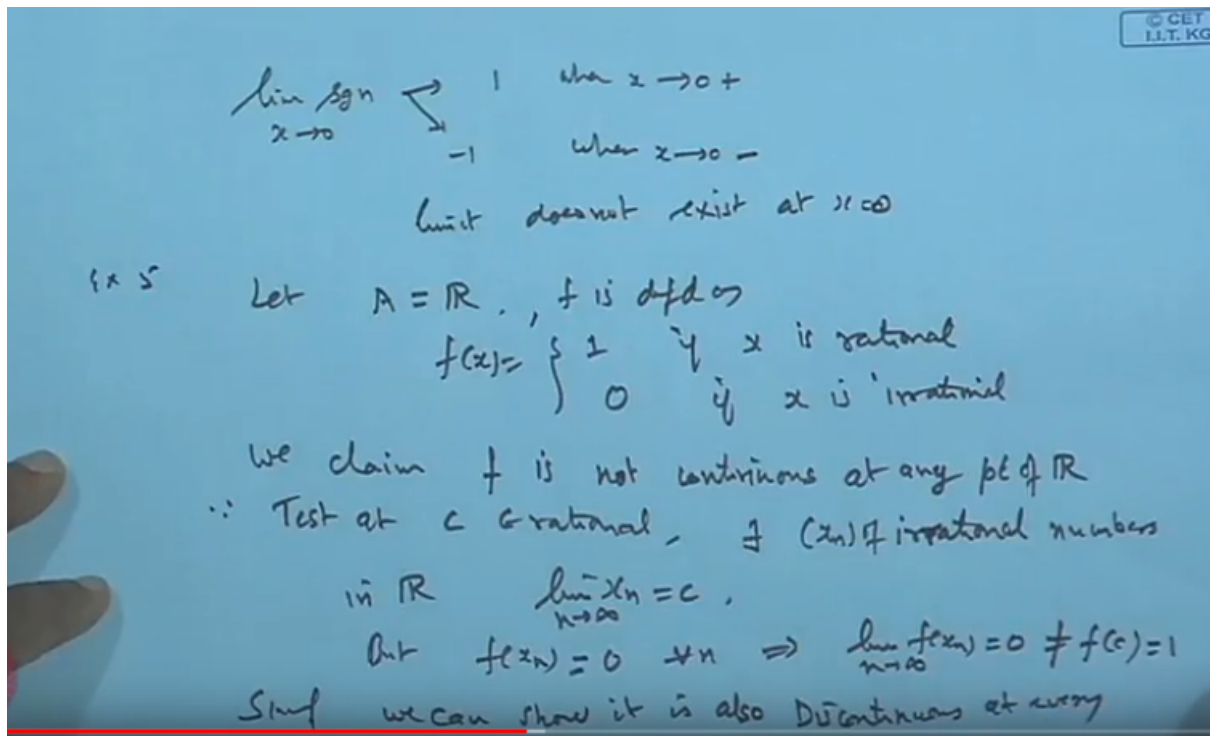 © CET
I.I.T. KG
lim sgn → 1 when x → 0 +
x → 0
→ -1 when x → 0 -
limit does not exist at x = 0
Ex 5 Let A = ℝ . , f is defd as
f(x) = { 1 if x is rational
0 if x is irrational
We claim f is not continuous at any pt of ℝ
∵ Test at c ∈ rational, ∃ (xn) of irrational numbers
in ℝ lim xn = c .
n→∞
But f(xn) = 0 ∀n ⇒ lim f(xn) = 0 ≠ f(c) = 1
n→∞
we can show it is also Discontinuous at every